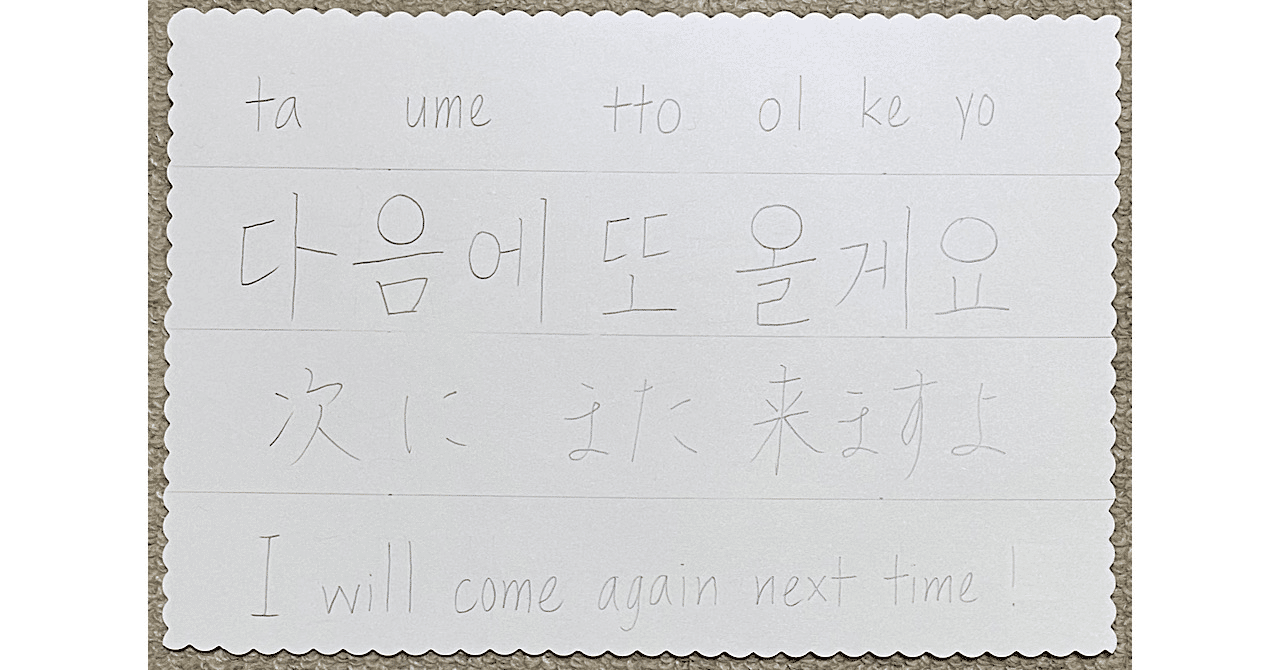 ta ume tto ol ke yo
다음에 또 올게요
次に また 来ますよ
I will come again next time!